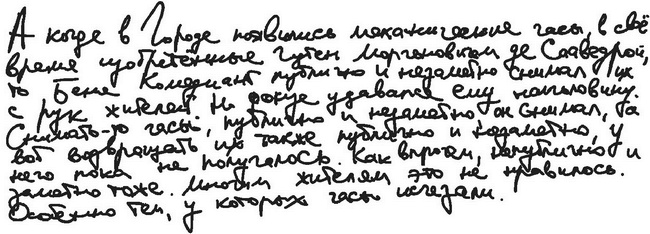 А когда в Городе появились механические часы, в своё
время изобретённые Гутен Моргеновичем де Сааведрой,
то Беня Комедиант публично и незаметно снимал их
с рук жителей. Но фокус удавался ему наполовину.
Снимать-то часы, публично и незаметно он снимал, да
вот возвращать их также публично и незаметно, у
него пока не получалось. Как впрочем, непублично и
заметно тоже. Многим жителям это не нравилось.
Особенно тем, у которых часы исчезали.